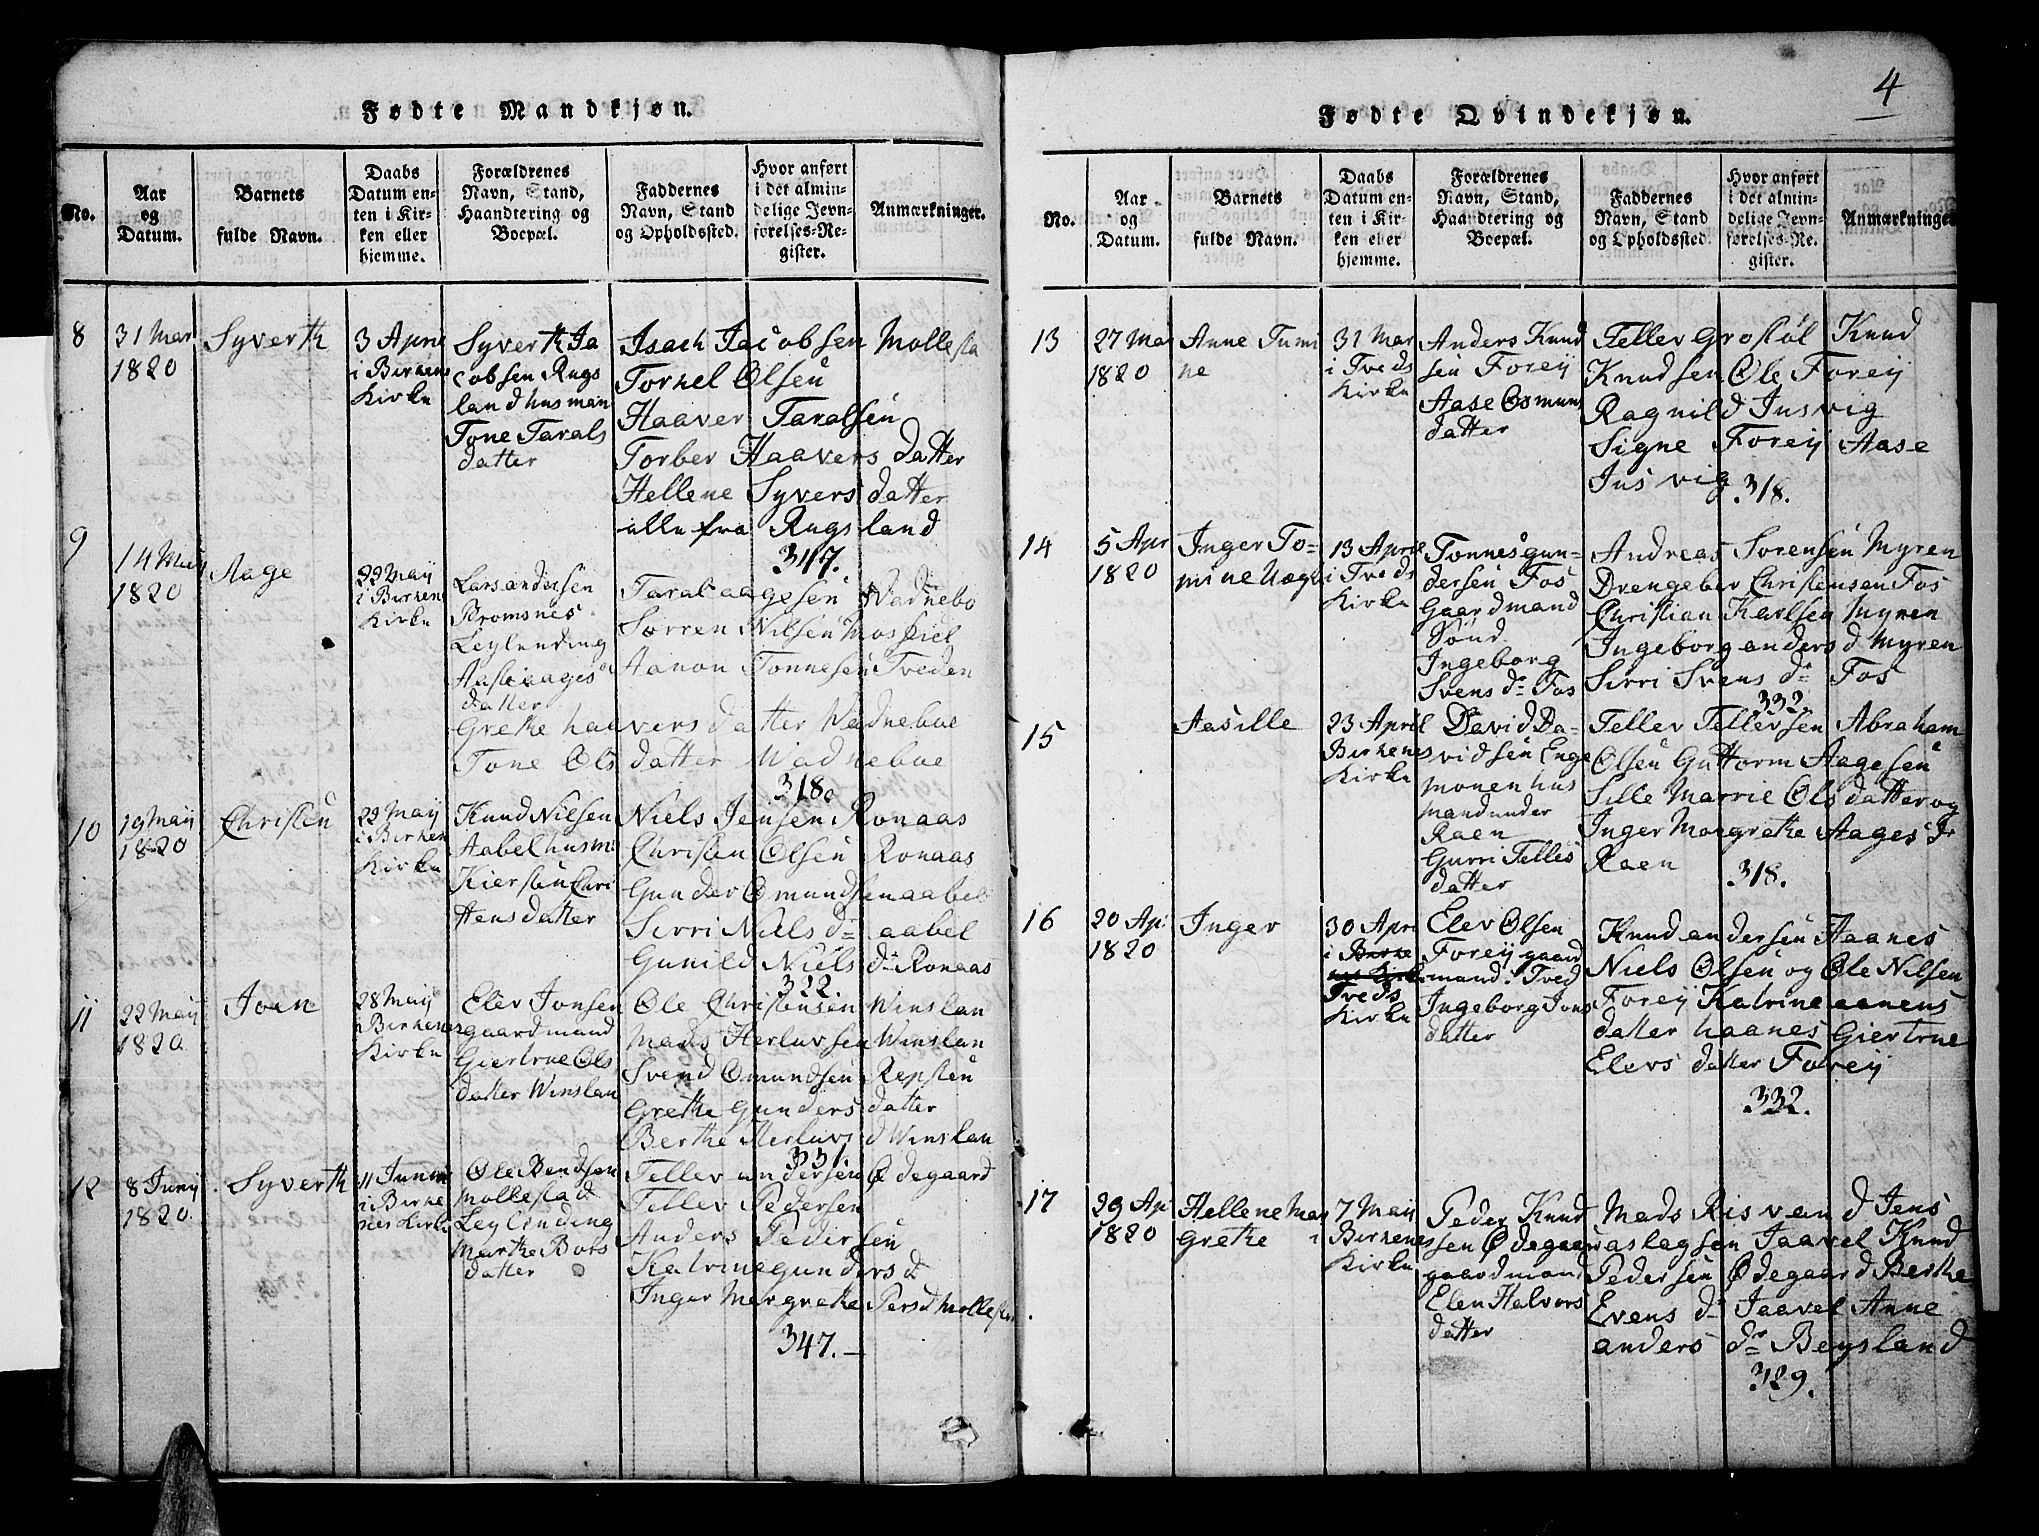 Fødte Mandkjøn.
No.
Aar
og
Datum.
Barnets
fulde Navn.
Daabs
Datum en-
ten i Kir-
ken eller
hjemme.
Forældrenes
Navn, Stand,
Haandtering og
Boepæl.
Faddernes
Navn, Stand
og Opholdssted.
Hvor anført
i det almin-
delige Jevn-
førelses-Re-
gister.
Anmærkninger.
8
31 Mar
1820
Syverth
3 April
i Birkenes
Kirke
Syverth Ja
cobsen Rugs
land husman
Tone Tarals
datter
Isach Jacobsen Mollesta
Torkel Olsen
Haaver Taralsen
Torber Haavers datter
Hellene Syvers datter
alle fra Rugsland
347.
9
14 Maij
1820
Aage
22 Maij
i Birkenes
Kirke
Lars andersen
Bromsnes
Leylending
Aasti aages
datter
Taral aagesen Wadnebo
Sørren Nilsen Mosfiel
Aanon Tonnesen Tveden
Grethe haavers datter Wadneboe
Tone Ols datter Wadneboe
318.
10
19 Maij
1820
Christen
22 Maij
i Birkenes
Kirke
Knud Nielsen
Aabel husm:
Kiersten Chri
stens datter
Niels Jensen Ronaas
Christen Olsen Ronaas
Gunder Omundsen aabel
Sirri Niels d: aabel
Gunild Niels d: Ronaas
322.
11
22 Maij
1820
Joen
28 Maij
i Birkenes
Kirke
Elev Jonsen
gaardmand
Giertrue Ols
datter Winslan
Ole Christensen Winslan
Mads Herluvsen Winslan
Svend Omundsen Repsten
Grethe Gunders datter
Berthe Herluvs d Winslan
331.
12
8 Junij
1820
Syverth
11 Junii
i Birke
nes Kirke
Ole Bendsen
Mollestad
Leylending
Marthe Bors
datter
Tellev andersen Ødegaard
Tellev Pedersen
Anders Pedersen
Katrine gunders d
Inger Margrethe Pers d Mollestad
347.
4
Fødte Qvindekjøn.
No.
Aar
og
Datum.
Barnets
fulde Navn.
Daabs
Datum en-
ten i Kir-
ken eller
hjemme.
Forældrenes
Navn, Stand,
Haandtering og
Boepæl.
Faddernes
Navn, Stand
og Opholdssted.
Hvor anført
i det almin-
delige Jevn-
førelses-Re-
gister.
Anmærkninger
13
27 Mar
1820
Anne Tomi
ne
31 Mar
i Tveds
Kirke
Anders Knud
sen Foreij
Aase Osmuns
datter
Tellev Grostøl Knud
Knudsen Ole Foreij
Ragnild Jusvig
Signe Foreij Aase
Jusvig
318.
14
5 Apr
1820
Inger To-
mine
13 April
i Tveds
Kirke
Tonnes gun-
dersen Fos
gaardmand
Ingeborg
Svens d: Fos
Andreas Sorensen Myren
Drengeber Christensen Fos
Christian Karlsen Myren
Ingeborg anders d Myren
Sirri Svens d: Fos
332.
15
Aasille
23 April
Birkenes
Kirke
David Da-
vidsen Enge
monen hus
mand under
Raen
Gurri Telles
datter
Tellev Tellevsen Abraham
Olsen Guttorm Aagesen
Sille Marrie Ols datter og
Inger Margrethe Aages dr
Raen
318.
16
20 Apr
1820
Inger
30 Apri
i Birke
nes Kirke
Tveds
Kirke
Elev Olsen
Foreij gaard
mand: Tved
Ingeborg Jons
datter
Knud andersen Haanes
Niels Olsen og Ole Nilsen
Foreij Katrine aanens
datter haanes Giertrue
Elevs datter Foreij
332.
17
29 Ap
1820
Hellene Mar
grethe
7 Maij
i Birkenes
Kirke
Peder Knud
sen Ødegaard
gaardmand
Elen Halvors
datter
Mads Risvand Jens
aslagsen Jaavel Knud
Pedersen Ødegaard Berthe
Evens d: Jaavel Anne
anders d: Beysland
329.